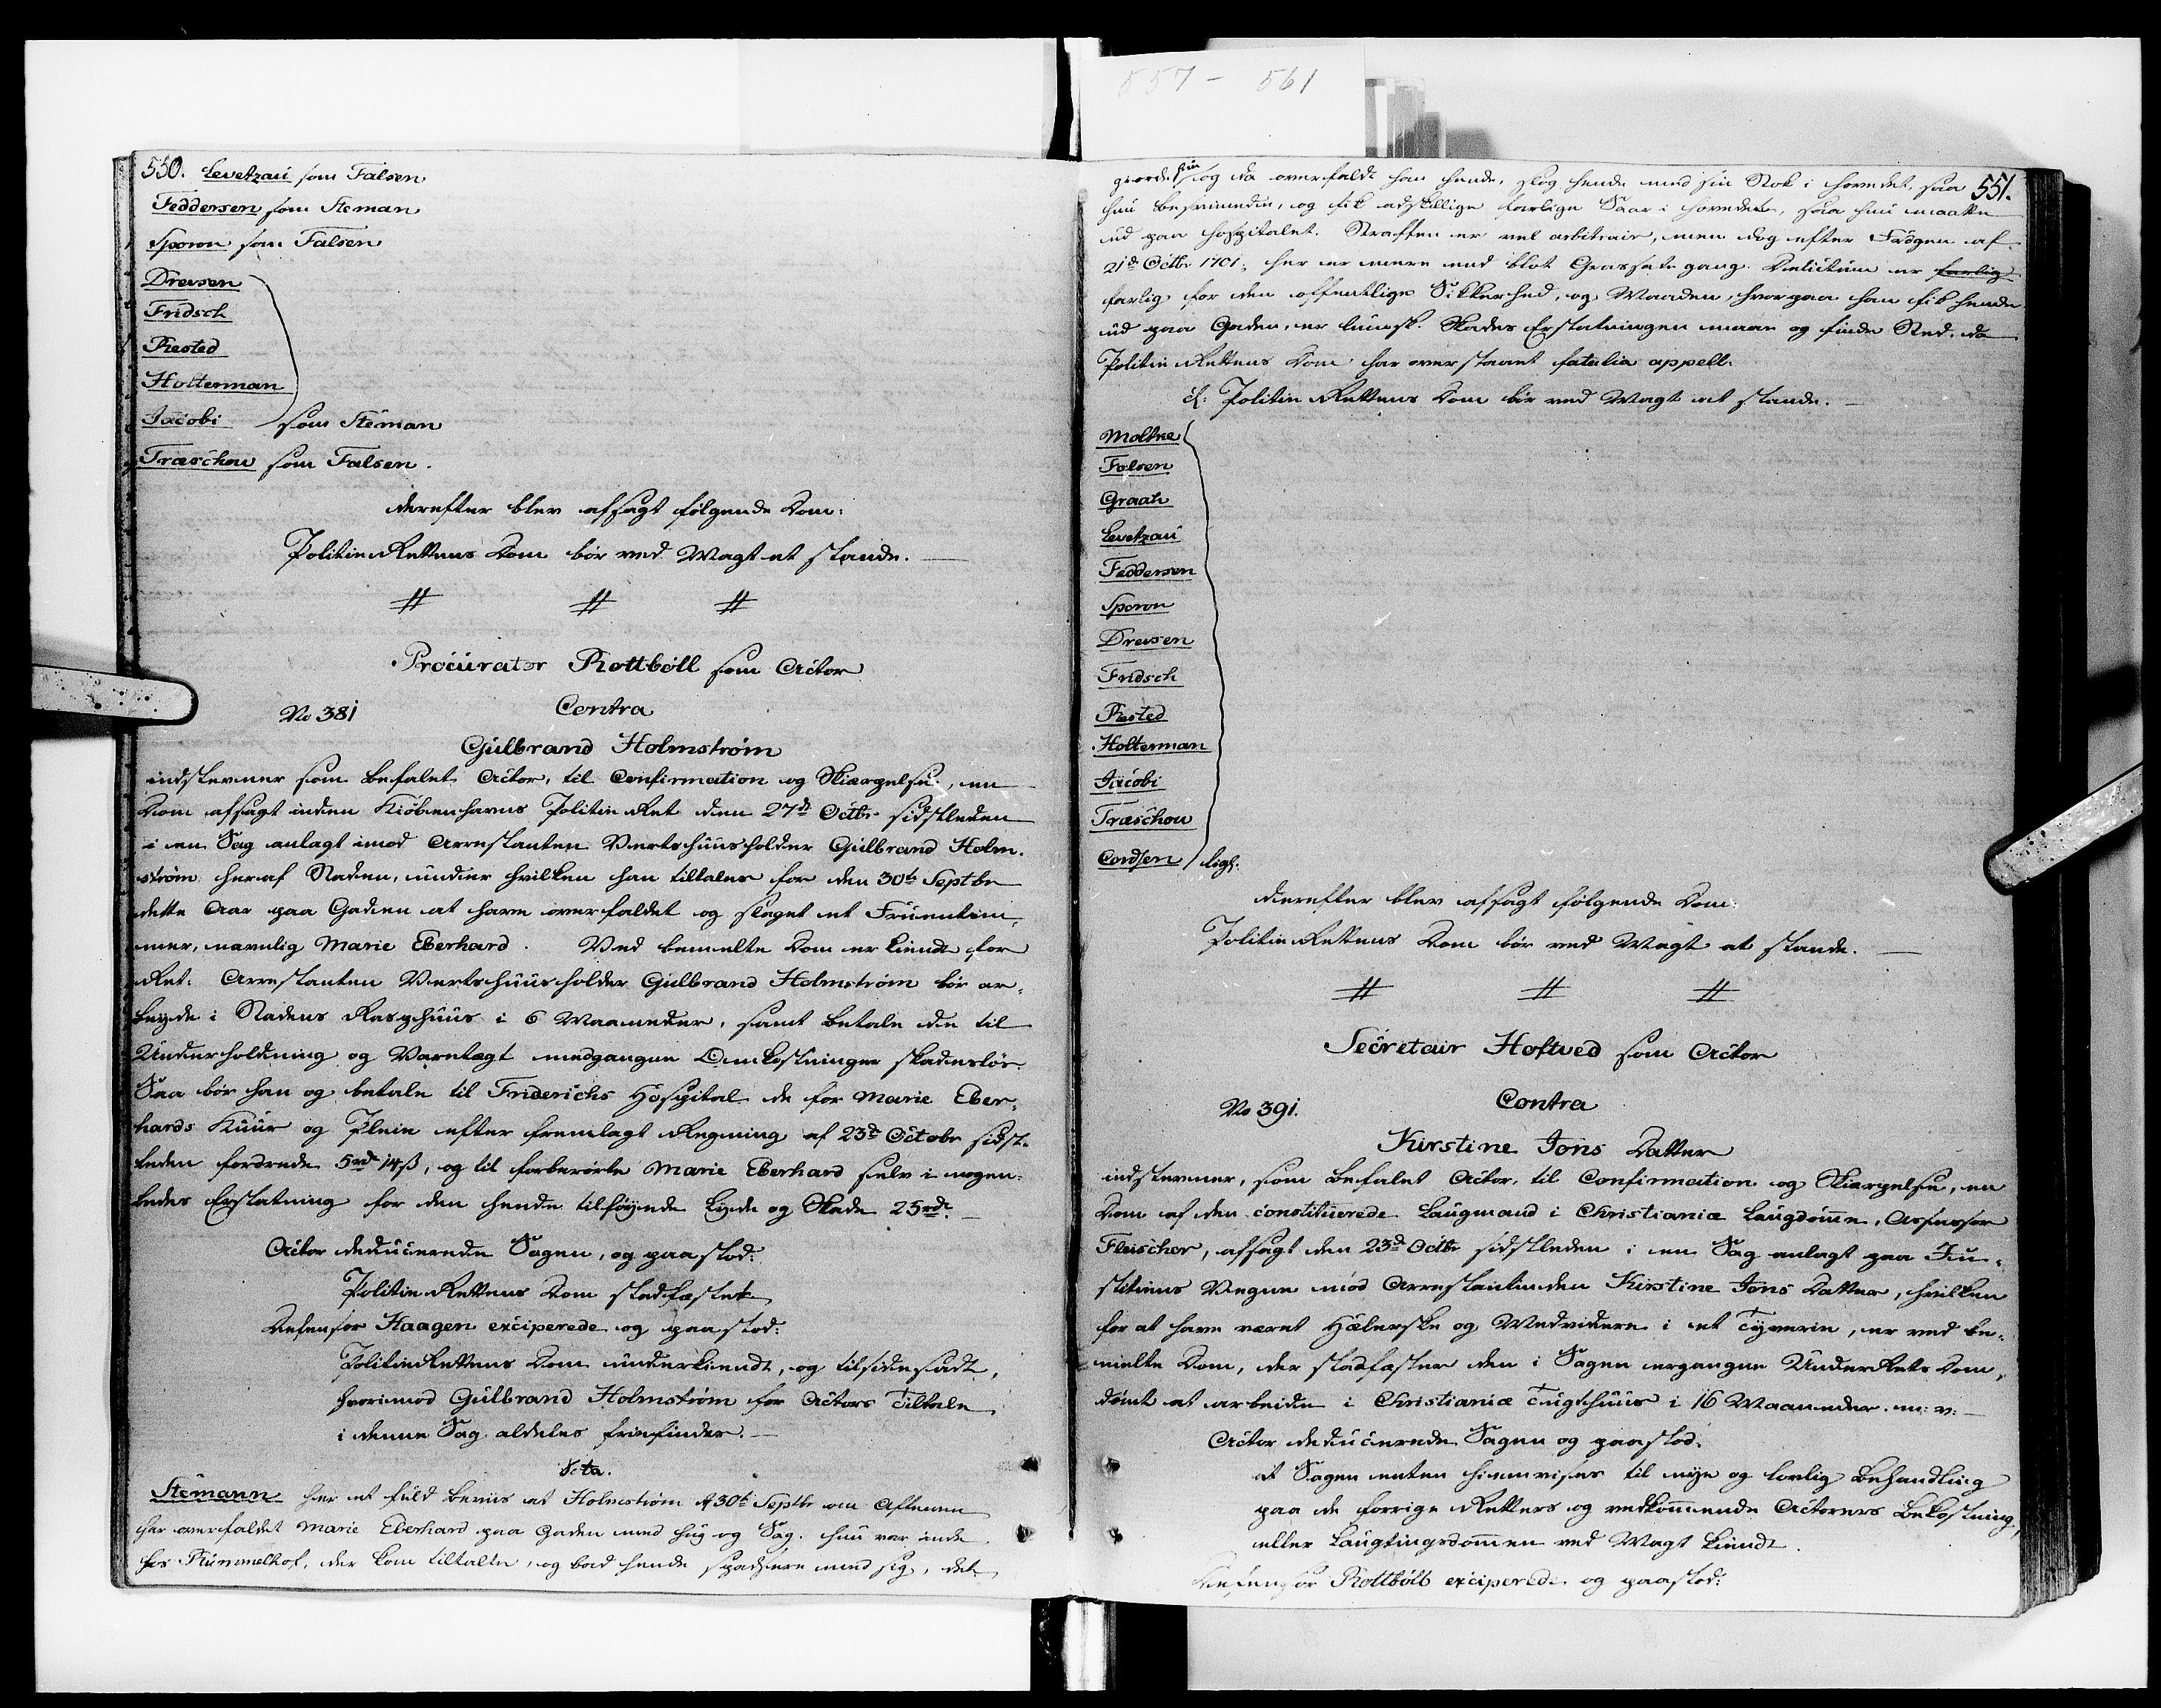 557 - 561
550. Levetzau som Falsen
Feddersen som Steman
Sporon som Falsen
Drewsen
Fridsch
Rested
Holterman
Jacobi som Steman
Træschou som Falsen.
derefter blev afsagt følgende Dom:
Politie Rettens Dom bør ved Magt at stande.
Procurator Rottbøll som Actor
No 381 Contra
Gulbrand Holmstrøm
indstevner som befalet Actor, til Confirmation og Skiærpelse, en
Dom afsagt inden Kiøbenhavns Politie Ret den 27de Octbr sidstleden
i en Sag anlagt imod Arrestanten Vertshuusholder Gulbrand Holm-
strøm heraf Staden, under hvilken han tiltales for den 30te Septbr
dette Aar paa Gaden at have overfaldet og slaget et Fruentim-
mer, navnlig Marie Eberhard. Ved bemelte Dom er kiendt for
Ret: Arrestanten Vertshuusholder Gulbrand Holmstrøm bør ar-
beyde i Stadens Rasphuus i 6 Maaneder, samt betale de til
Underholdning og Varetægt medgangne Omkostninger skadesløs.
Saa bør han og betale til Friderichs Hospital de for Marie Eber-
hards Kuur og Pleie efter fremlagt Regning af 23de Octobr sidst-
leden fordrede 5rd 14ß, og til forberørte Marie Eberhard selv i nogen-
ledes Erstatning for den hende tilføyede Lyde og Skade 25rdr.
Actor deducerede Sagen, og paastod:
Politie Rettens Dom stadfæstet
Defensor Haagen exciperede og paastod:
Politie Rettens Dom underkiendt, og tilsidesadt,
hvorimod Gulbrand Holmstrøm for Actors Tiltale
i denne Sag aldeles friefindes.
Vota.
Stemann her et fuld beviis at Holmstrøm d 30te Septbr om Aftenen
har overfaldet Marie Eberhard paa Gaden med hug og Slag. hun var inde
hos Rümmelhof, der kom tiltalte, og bad hende spadsere med sig, det
giorde hun og da overfaldt han hende, slog hende med sin Stok i hovedet, saa 551.
hun besvimede, og fik adskillige farlige Saar i hovedet, saa hun maatte
ud paa hospitalet. Straffen er vel arbitrair, men dog efter Frdgen af
21de Octbr 1701; her er mere end blot Grassate gang. Delictum er farlig
farlig for den offentlige Sikkerhed, og Maaden, hvorpaa han fik hende
ud paa Gaden, er lumsk. Skades Erstatningen maae og finde Sted, da
Politie Rettens Dom har overstaaet fatalia appell.
cl: Politie Rettens Dom bør ved Magt at stande.
Moltke
Falsen
Graah
Levetzau
Feddersen
Sporon
Drewsen
Fridsch
Rested
Holterman
Jacobi
Træschou
Cordsen ligs.
derefter blev afsagt følgende Dom:
Politie Rettens Dom bør ved Magt at stande.
Secretair Hoftved som Actor
No 391. Contra
Kirstine Jons Datter
indstevner, som befalet Actor, til Confirmation og Skiærpelse, en
Dom af den constituerede Laugmand i Christianiæ Laugdømme, Assessor
Fleischer, afsagt den 23de Octbr sidstleden i en Sag anlagt paa Ju-
stitiens Vegne mod Arrestantinden Kirstine Jons Datter, hvilken
for at have været Hælerske og Medvidere i et Tyverie, er ved be-
melte Dom, der stadfæster den i Sagen ergangne Under Rets Dom,
dømt at arbeide i Christianiæ Tugthuus i 16 Maaneder. m: v:
Actor deducerede Sagen og paastod:
at Sagen enten hiemvises til nye og lovlig Behandling
paa de forrige Retters og vedkommende Actorers Bekostning,
eller Laugtingsdommen ved Magt kiendt.
Defensor Rottbøll exciperede og paastod: